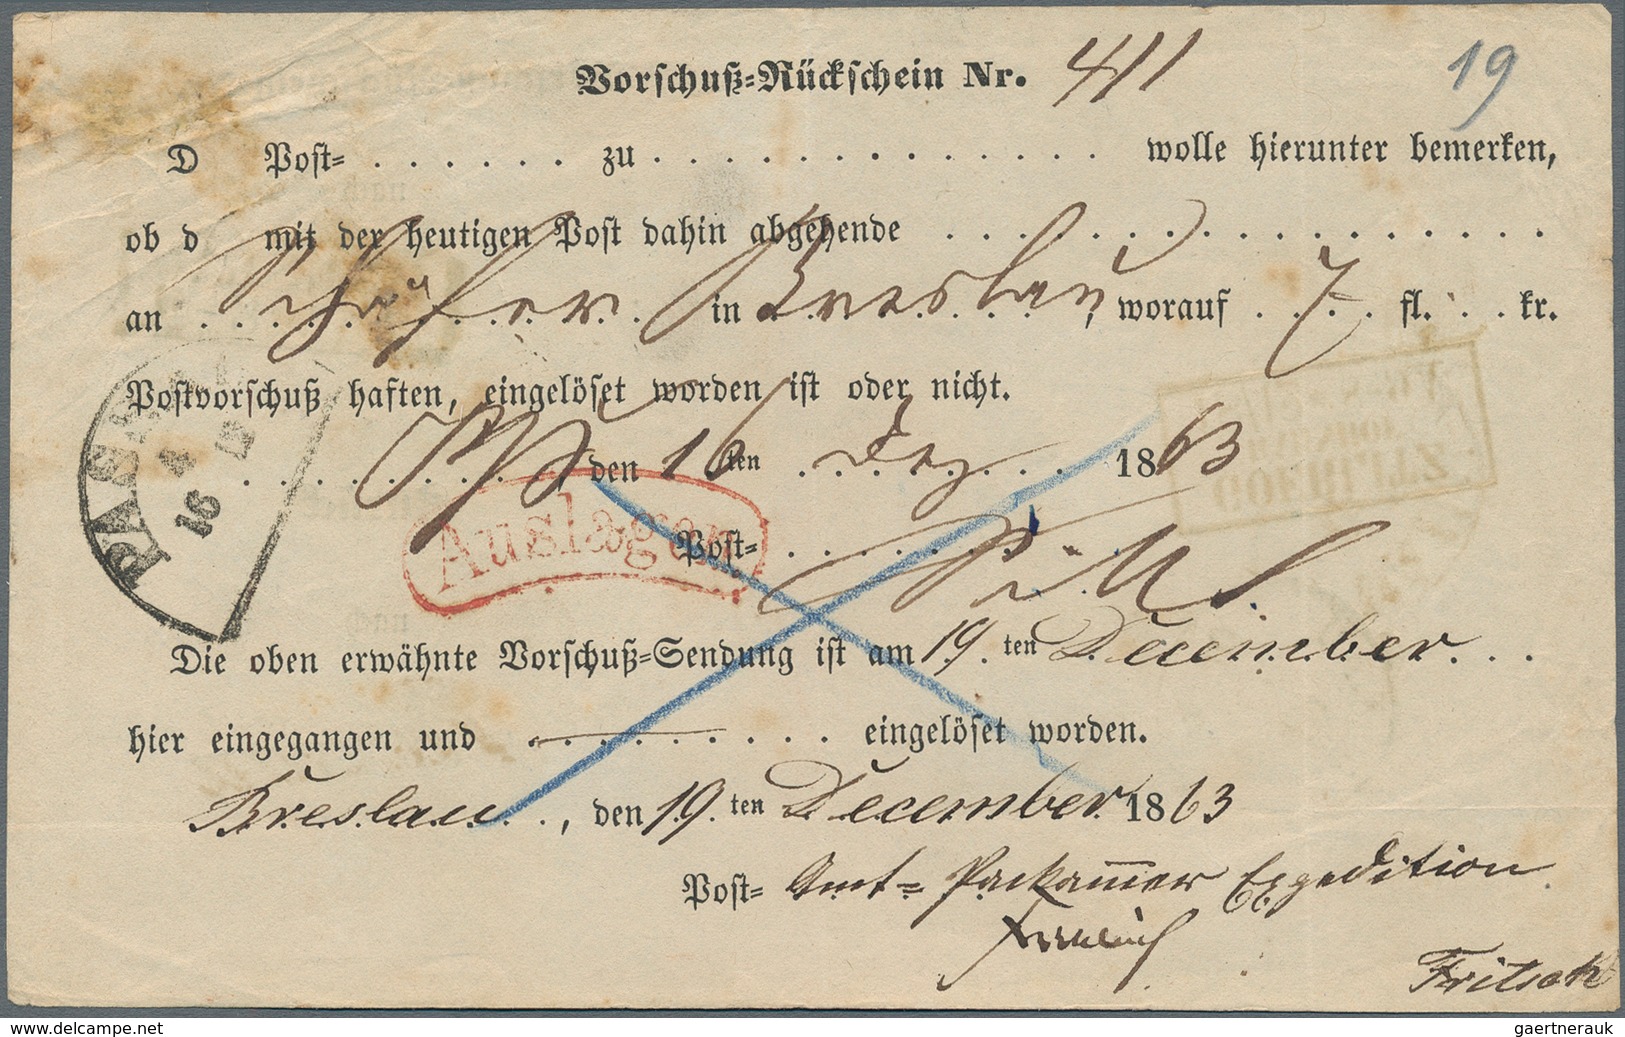 Vorschuß-Rückschein Nr. 411
19
D Post- . . . . . . zu . . . . . . . . . . . . . wolle hierunter bemerken,
ob d mit der heutigen Post dahin abgehende . . . . . . . . . . . . . . . . .
an Schäfer in Breslau, worauf 7 fl. . . kr.
Postvorschuß haften, eingelöset worden ist oder nicht.
den 16ten Dez. 1863
PASSAU
4
16
12
Auslagen
Post-
Die oben erwähnte Vorschuß-Sendung ist am 19.ten December . . .
hier eingegangen und . . . . . . . . . eingelöset worden.
Breslau, den 19.ten December 1863
Post- Amt- Packammer Expedition
Fritsch
www.delcampe.net
gaertnerauk